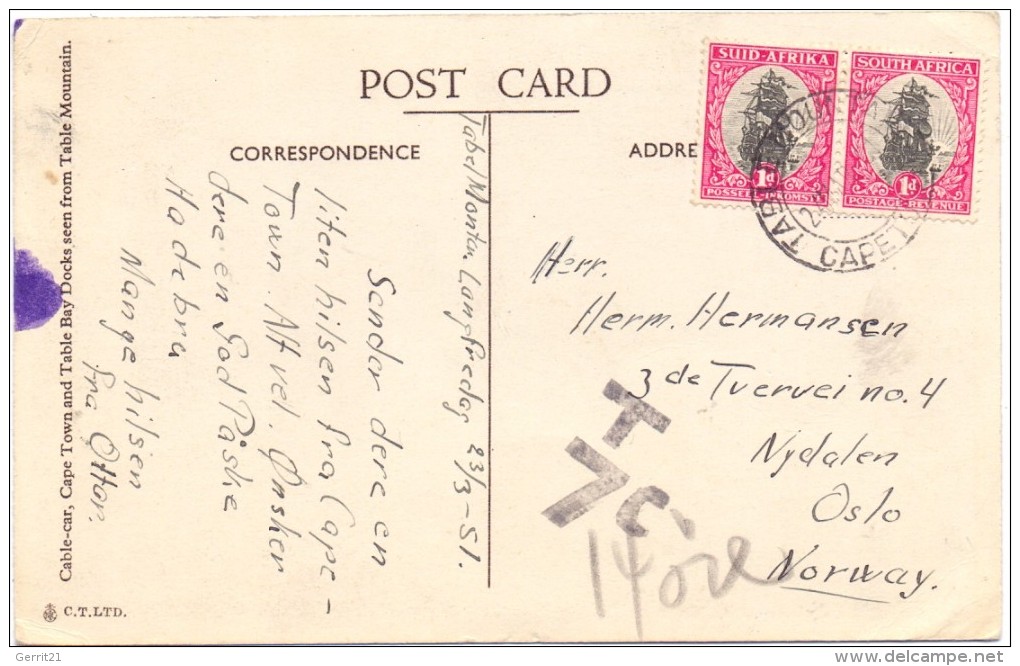 POST CARD
CORRESPONDENCE
ADDRE
SUID-AFRIKA
1d
POSSEEL-INKOMSTE
SOUTH AFRICA
1d
POSTAGE-REVENUE
CAPET
Cable-car, Cape Town and Table Bay Docks seen from Table Mountain.
C.T.LTD.
Tabel Montan Langfredag 23/3-51.
Sender dere en
liten hilsen fra Cape-
Town. Alt vel. Ønsker
dere en God Påske
Ha de bra
Mange hilsen
fra Ottar.
Herr.
Herm. Hermansen
3 de Tvervei no. 4
Nydalen
Oslo
Norway.
T
7c.
14 öre
Gerrit21